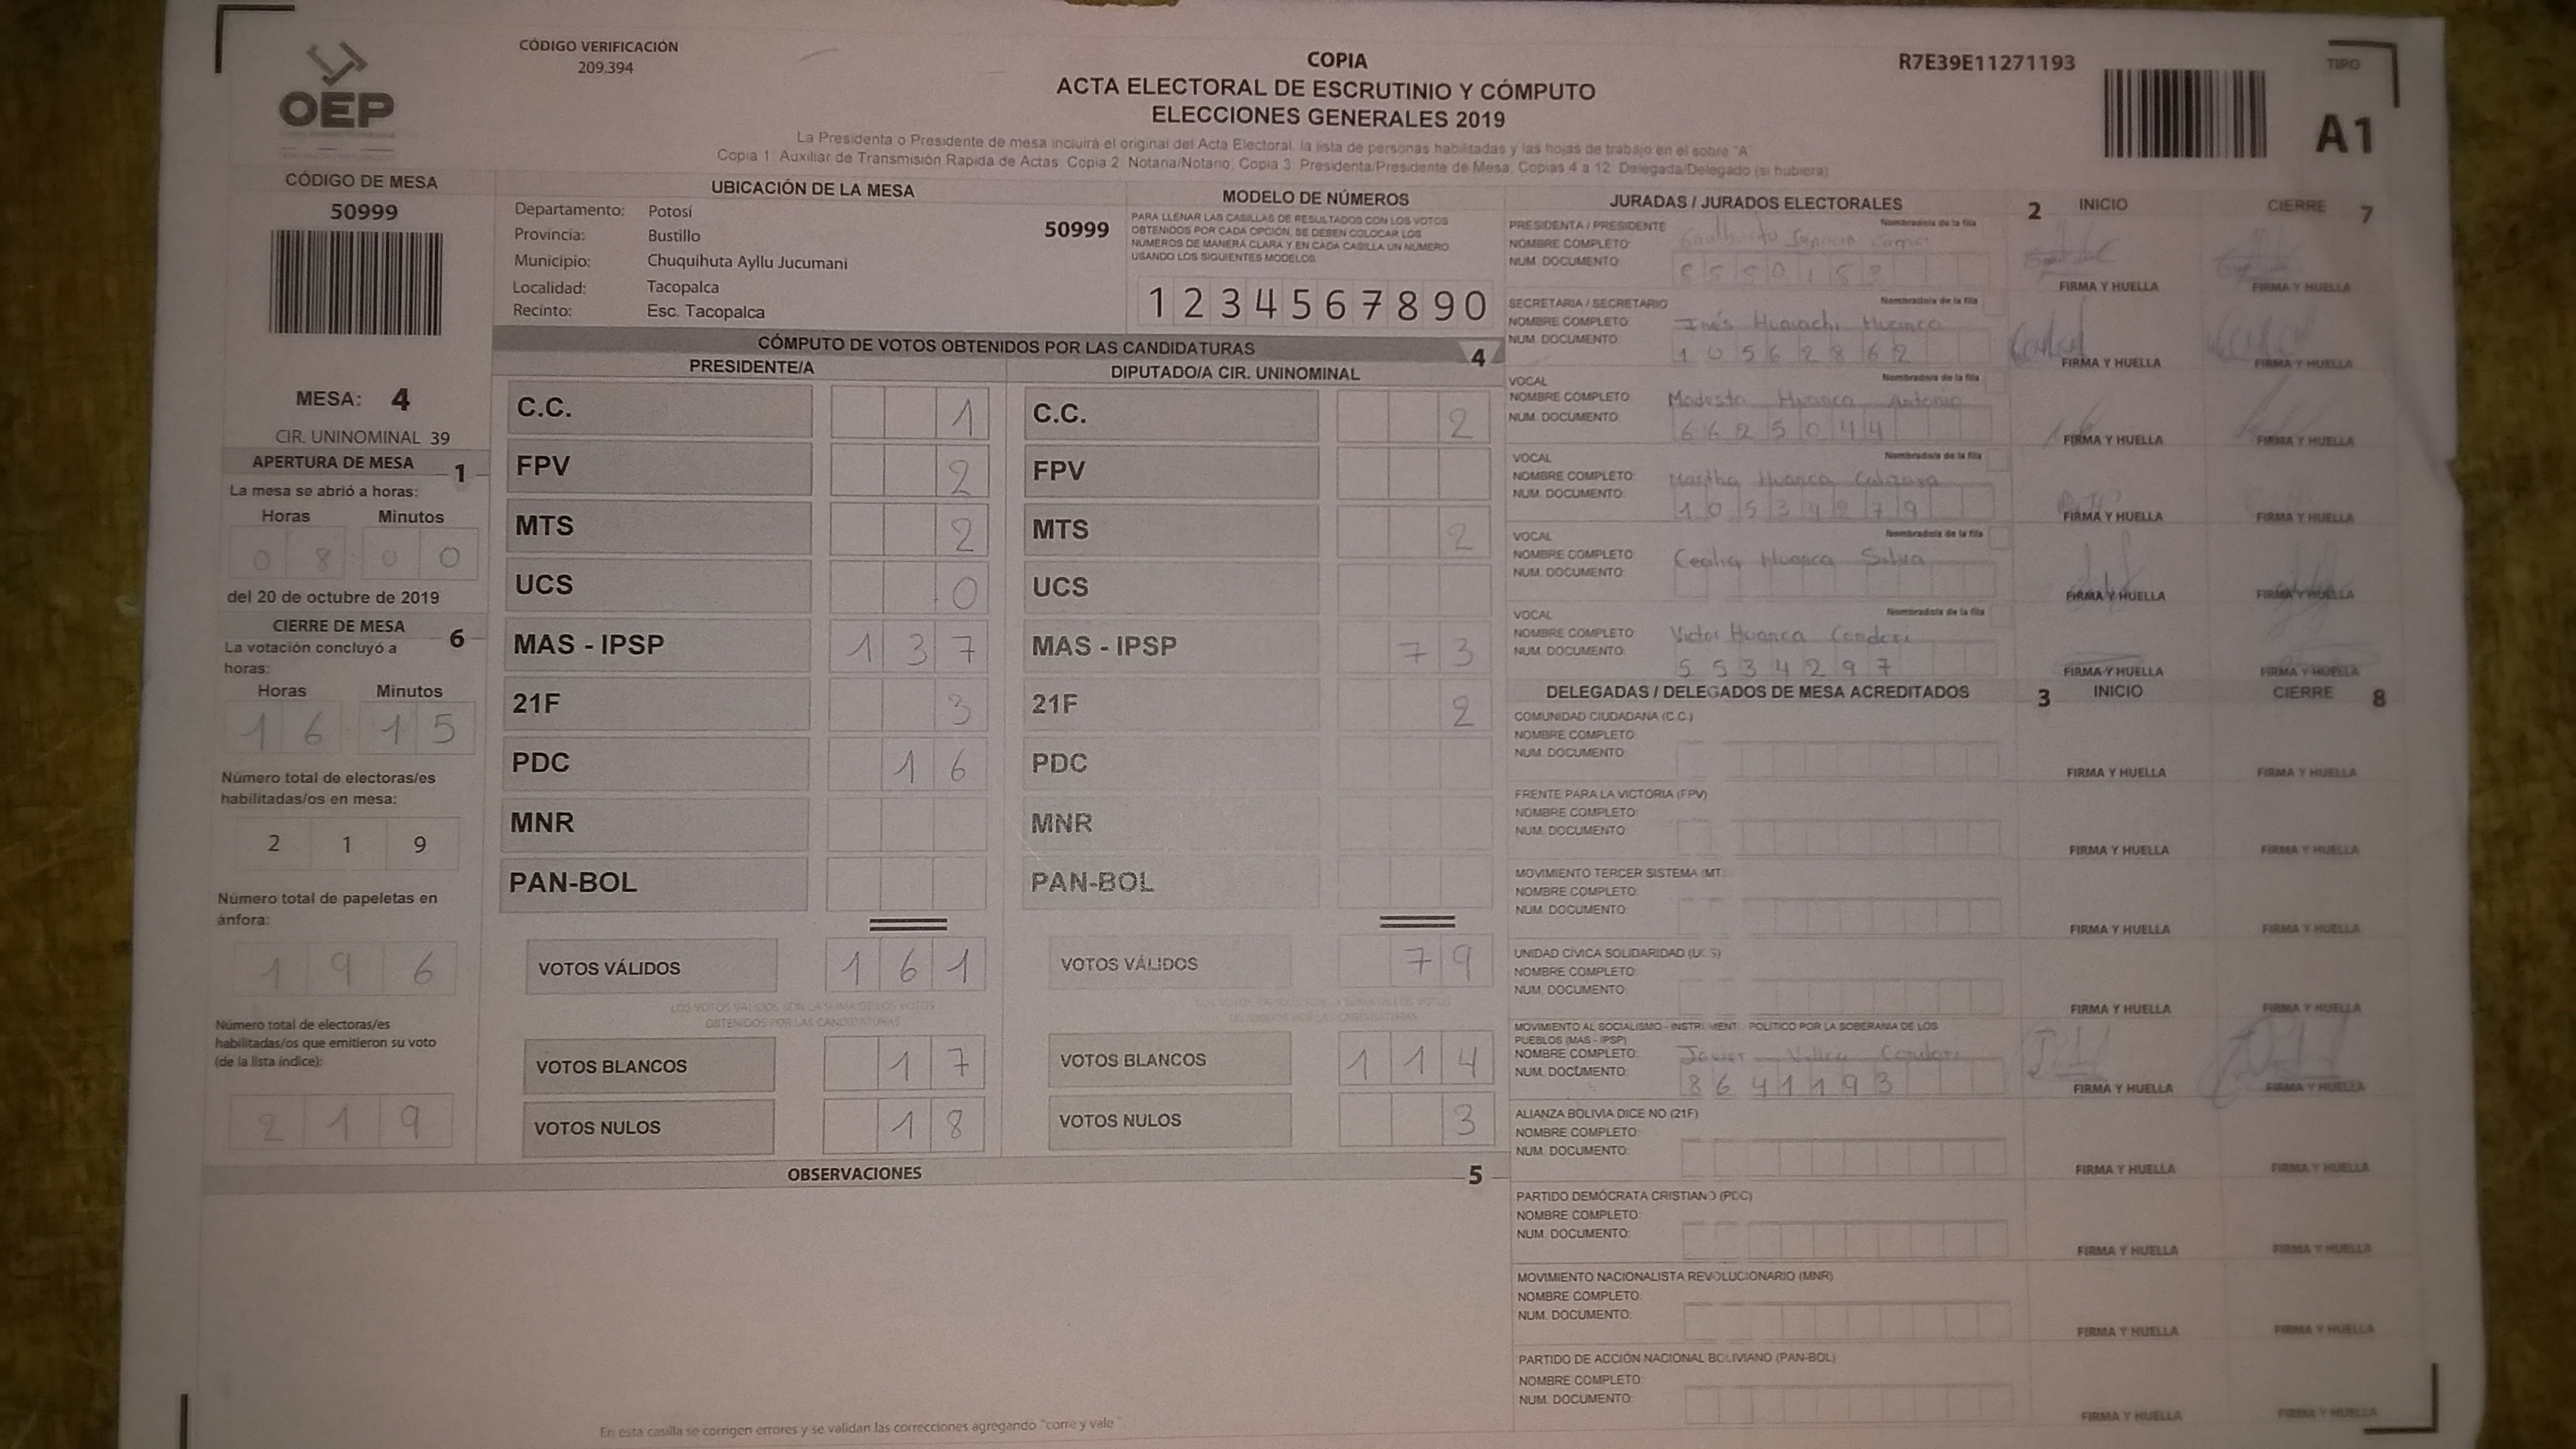 OEP
CÓDIGO VERIFICACIÓN
209.394
COPIA
ACTA ELECTORAL DE ESCRUTINIO Y CÓMPUTO
ELECCIONES GENERALES 2019
La Presidenta o Presidente de mesa incluirá el original del Acta Electoral, la lista de personas habilitadas y las hojas de trabajo en el sobre "A
Copia 1: Auxiliar de Transmisión Rapida de Actas, Copia 2: Notaria/Notario, Copia 3: Presidenta/Presidente de Mesa, Copias 4 a 12: Delegada/Delegado (si hubiera)
R7E39E11271193
TIPO
A1
CÓDIGO DE MESA
50999
MESA: 4
CIR. UNINOMINAL 39
APERTURA DE MESA 1
La mesa se abrió a horas:
Horas Minutos
0 8 : 0 0
del 20 de octubre de 2019
CIERRE DE MESA 6
La votación concluyó a
horas:
Horas Minutos
1 6 : 1 5
Número total de electoras/es
habilitadas/os en mesa:
2 1 9
Número total de papeletas en
ánfora:
1 9 6
Número total de electoras/es
habilitadas/os que emitieron su voto
(de la lista índice):
2 1 9
UBICACIÓN DE LA MESA
Departamento: Potosí
Provincia: Bustillo
Municipio: Chuquihuta Ayllu Jucumani
Localidad: Tacopalca
Recinto: Esc. Tacopalca
50999
MODELO DE NÚMEROS
PARA LLENAR LAS CASILLAS DE RESULTADOS CON LOS VOTOS
OBTENIDOS POR CADA OPCIÓN, SE DEBEN COLOCAR LOS
NÚMEROS DE MANERA CLARA Y EN CADA CASILLA UN NÚMERO
USANDO LOS SIGUIENTES MODELOS
1 2 3 4 5 6 7 8 9 0
CÓMPUTO DE VOTOS OBTENIDOS POR LAS CANDIDATURAS 4
PRESIDENTE/A
C.C. 1
FPV 2
MTS 2
UCS 0
MAS - IPSP 1 3 7
21F 3
PDC 1 6
MNR
PAN-BOL
VOTOS VÁLIDOS 1 6 1
LOS VOTOS VÁLIDOS SON LA SUMA DE LOS VOTOS
OBTENIDOS POR LAS CANDIDATURAS
VOTOS BLANCOS 1 7
VOTOS NULOS 1 8
DIPUTADO/A CIR. UNINOMINAL
C.C. 2
FPV
MTS 2
UCS
MAS - IPSP 7 3
21F 2
PDC
MNR
PAN-BOL
VOTOS VÁLIDOS 7 9
LOS VOTOS VÁLIDOS SON LA SUMA DE LOS VOTOS
OBTENIDOS POR LAS CANDIDATURAS
VOTOS BLANCOS 1 1 4
VOTOS NULOS 3
OBSERVACIONES 5
En esta casilla se corrigen errores y se validan las correcciones agregando "corre y vale"
JURADAS / JURADOS ELECTORALES 2 INICIO CIERRE 7
PRESIDENTA / PRESIDENTE Nombrado/a de la fila
NOMBRE COMPLETO:
NUM. DOCUMENTO:
FIRMA Y HUELLA FIRMA Y HUELLA
SECRETARIA / SECRETARIO Nombrado/a de la fila
NOMBRE COMPLETO: Inés Huarachi Huanca
NUM. DOCUMENTO: 1 0 5 6 2 8 6 2
FIRMA Y HUELLA FIRMA Y HUELLA
VOCAL Nombrado/a de la fila
NOMBRE COMPLETO: Modesta Huanca Antonio
NUM. DOCUMENTO: 6 6 2 5 0 4 4
FIRMA Y HUELLA FIRMA Y HUELLA
VOCAL Nombrado/a de la fila
NOMBRE COMPLETO: Martha Huanca
NUM. DOCUMENTO: 1 0 5 3 4 2 7 9
FIRMA Y HUELLA FIRMA Y HUELLA
VOCAL Nombrado/a de la fila
NOMBRE COMPLETO: Cecilia Huanca
NUM. DOCUMENTO:
FIRMA Y HUELLA FIRMA Y HUELLA
VOCAL Nombrado/a de la fila
NOMBRE COMPLETO: Victor Huanca Condori
NUM. DOCUMENTO: 5 5 3 4 2 9 7
FIRMA Y HUELLA FIRMA Y HUELLA
DELEGADAS / DELEGADOS DE MESA ACREDITADOS 3 INICIO CIERRE 8
COMUNIDAD CIUDADANA (C.C.)
NOMBRE COMPLETO:
NUM. DOCUMENTO:
FIRMA Y HUELLA FIRMA Y HUELLA
FRENTE PARA LA VICTORIA (FPV)
NOMBRE COMPLETO:
NUM. DOCUMENTO:
FIRMA Y HUELLA FIRMA Y HUELLA
MOVIMIENTO TERCER SISTEMA (MT
NOMBRE COMPLETO:
NUM. DOCUMENTO:
FIRMA Y HUELLA FIRMA Y HUELLA
UNIDAD CÍVICA SOLIDARIDAD (UCS)
NOMBRE COMPLETO:
NUM. DOCUMENTO:
FIRMA Y HUELLA FIRMA Y HUELLA
MOVIMIENTO AL SOCIALISMO - INSTRUMENT POLÍTICO POR LA SOBERANIA DE LOS
PUEBLOS (MAS - IPSP)
NOMBRE COMPLETO: Javier
NUM. DOCUMENTO: 8 6 4 1 1 9 3
FIRMA Y HUELLA FIRMA Y HUELLA
ALIANZA BOLIVIA DICE NO (21F)
NOMBRE COMPLETO:
NUM. DOCUMENTO:
FIRMA Y HUELLA FIRMA Y HUELLA
PARTIDO DEMÓCRATA CRISTIANO (PDC)
NOMBRE COMPLETO:
NUM. DOCUMENTO:
FIRMA Y HUELLA FIRMA Y HUELLA
MOVIMIENTO NACIONALISTA REVOLUCIONARIO (MNR)
NOMBRE COMPLETO:
NUM. DOCUMENTO:
FIRMA Y HUELLA FIRMA Y HUELLA
PARTIDO DE ACCIÓN NACIONAL BOLIVIANO (PAN-BOL)
NOMBRE COMPLETO:
NUM. DOCUMENTO:
FIRMA Y HUELLA FIRMA Y HUELLA